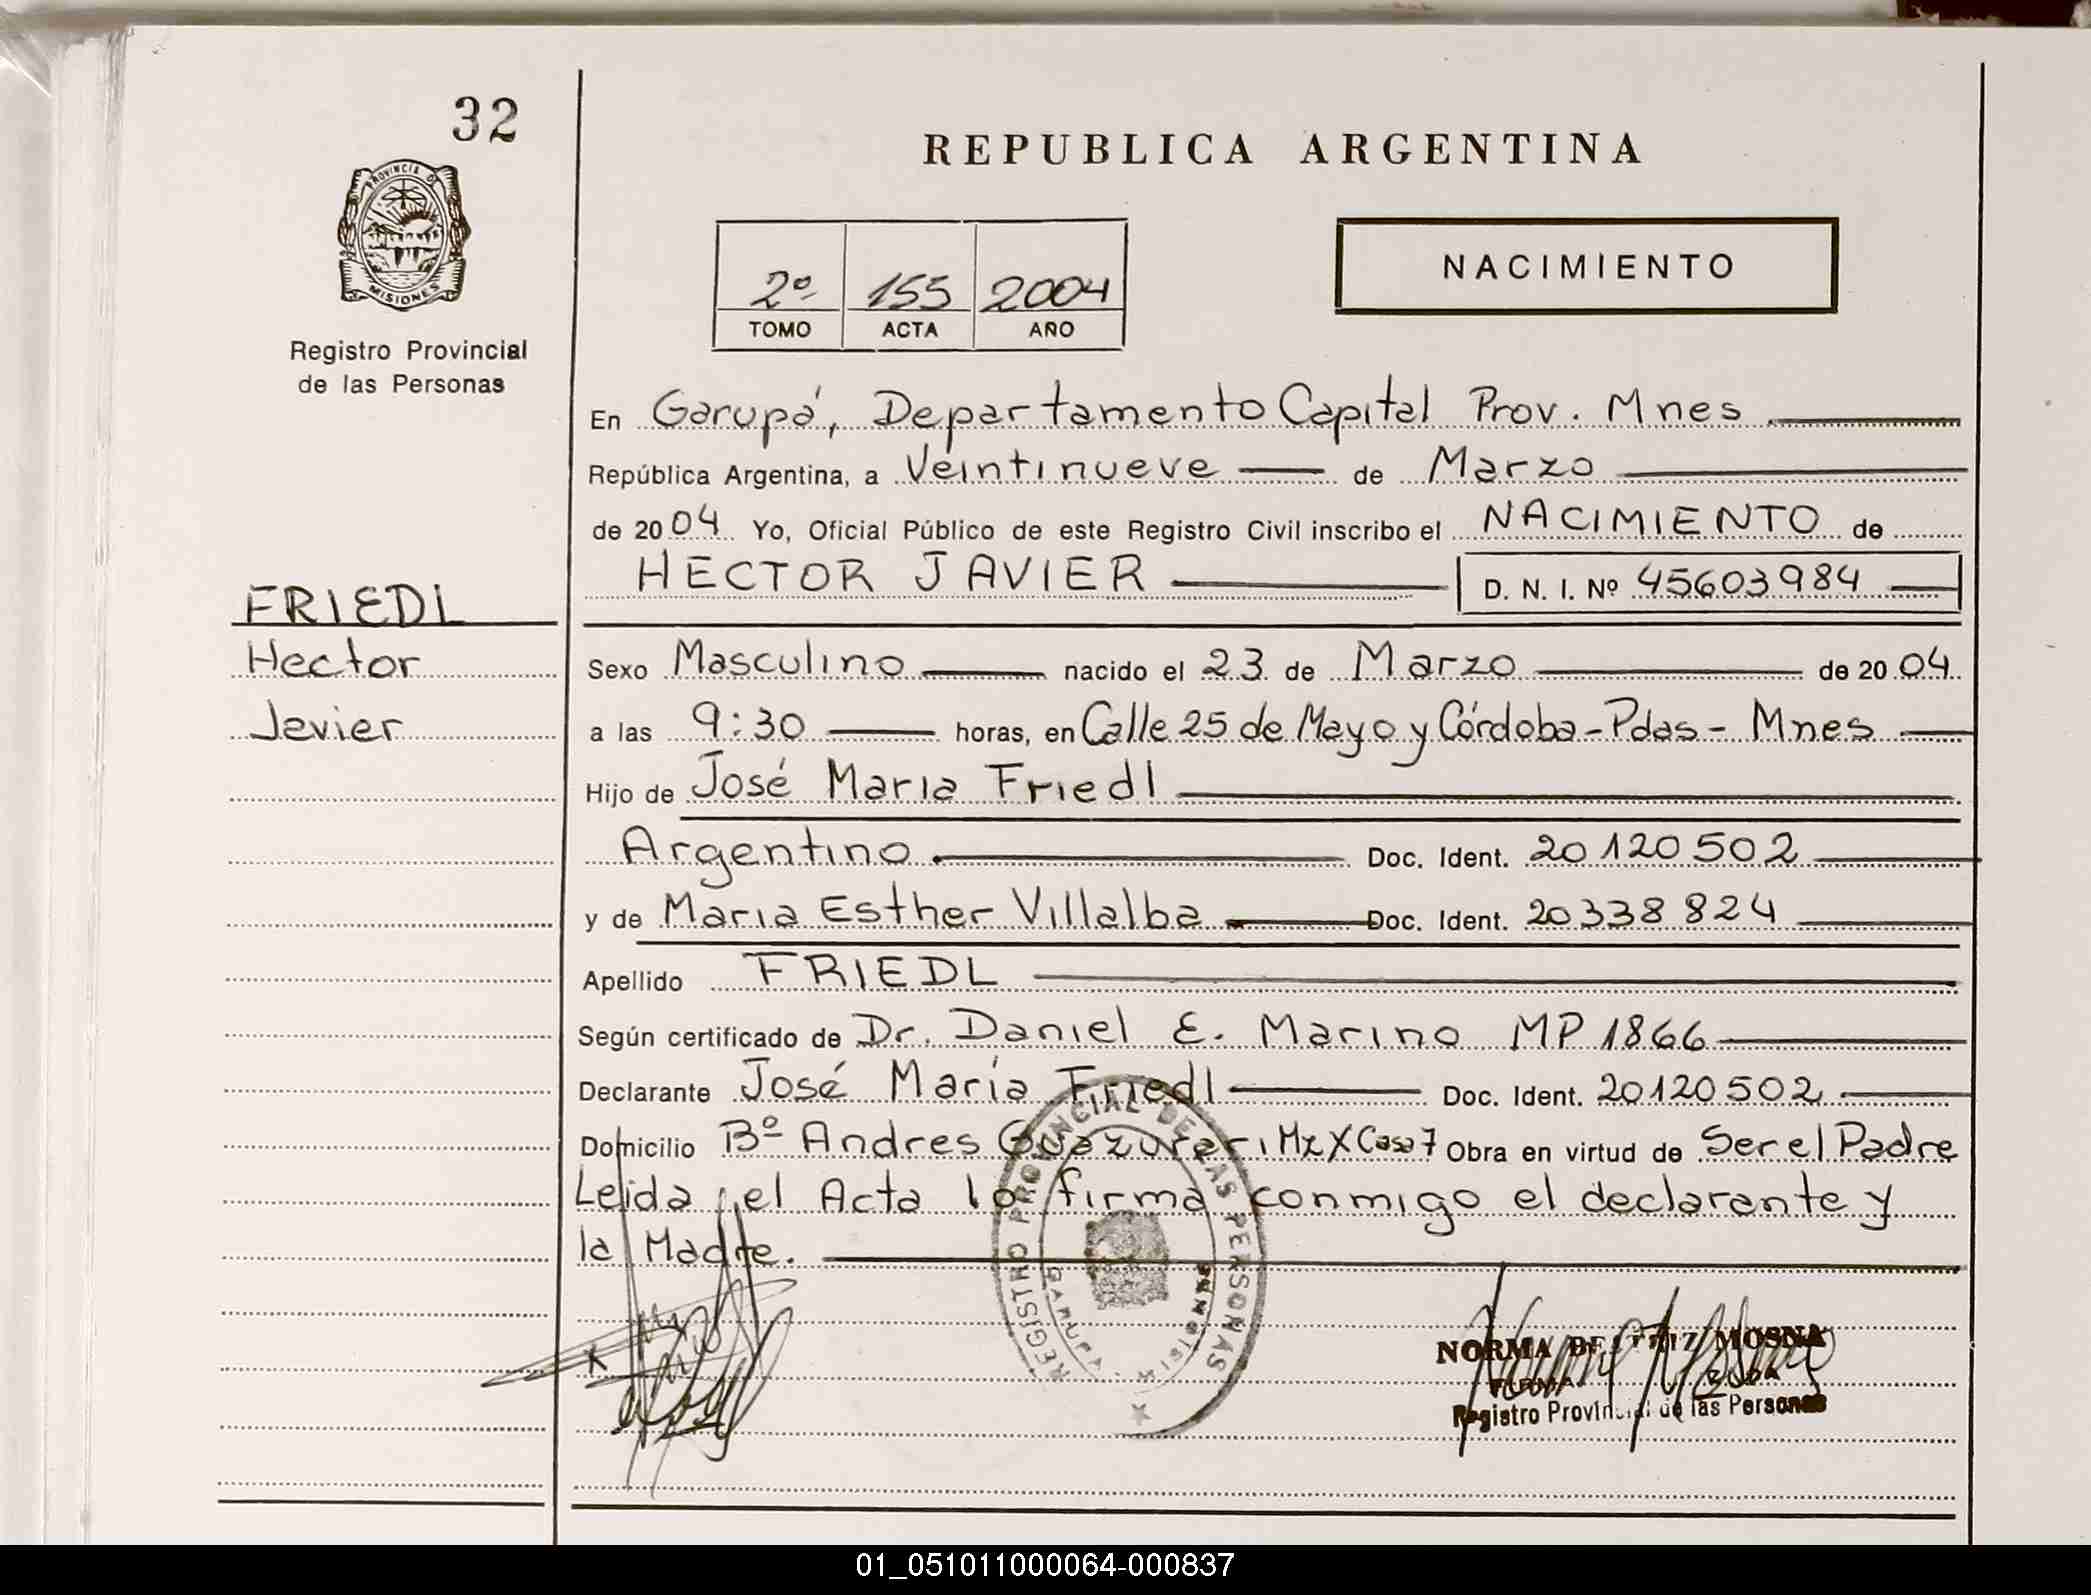 32
REPUBLICA ARGENTINA
PROVINCIA DE
MISIONES
Registro Provincial
de las Personas
2º 155 2004
TOMO ACTA AÑO
NACIMIENTO
En Garupá, Departamento Capital Prov. Mnes
República Argentina, a Veintinueve de Marzo
de 2004 Yo, Oficial Público de este Registro Civil inscribo el NACIMIENTO de
HECTOR JAVIER D. N. I. Nº 45603984
FRIEDL
Hector
Javier
Sexo Masculino nacido el 23 de Marzo de 2004
a las 9:30 horas, en Calle 25 de Mayo y Córdoba-Pdas-Mnes
Hijo de José Maria Friedl
Argentino Doc. Ident. 20120502
y de Maria Esther Villalba Doc. Ident. 20338824
Apellido FRIEDL
Según certificado de Dr. Daniel E. Marino MP 1866
Declarante José María Friedl Doc. Ident. 20120502
Domicilio Bº Andres Guazurari Mz X Casa 7 Obra en virtud de Ser el Padre
Leida el Acta la firma conmigo el declarante y
la Madre.
REGISTRO PROVINCIAL DE LAS PERSONAS
GARUPA
X
NORMA BEATRIZ MOSNA
Registro Provincial de las Personas
01_051011000064-000837